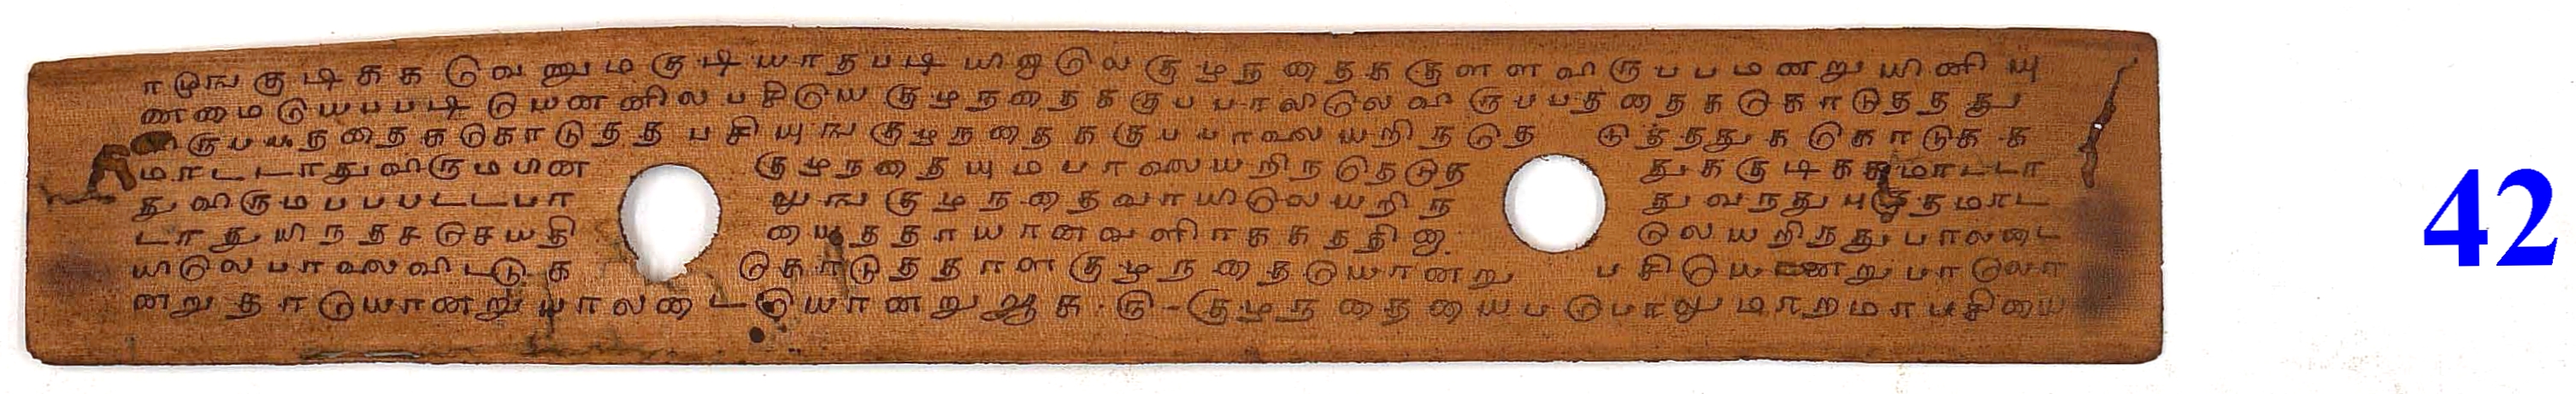 ாழுங குடிகக டுவணுமகுடியாதபடியினுடுலகுழநதைககுளளவிருபபமனறுயினியு
ணமைடுயபபடிடுயனனிலபசிடுயகுழநதைககுபபாலிடுலவிருபபததைகடுகாடுததது
விருபபததைகடுகாடுததபசியுஙகுழநதைககுபபாலையறிநடுத டுததது கடுகாடுகக
மாடடாதுவிருமபின குழநதையுமபாலையறிநடுதடுத துககுடிககமாடடா
துவிருமபபபடடபா லுஙகுழநதைவாயிடுலயறிந துவநதுபுகுதமாட
டாதுயிநதசடுசயதி யைததாயானவளிாகசுததினு டுலயறிநதுபாலடை
யிடுலபாலைவிடடுக டுகாடுததாளகுழநதைடுயானறு பசிடுயானறுபாடுலா
னறுதாடுயானறுபாலடைடுயானறுஆக ௫-குழநதையைபடுபாலுமாறமாபசியை
42